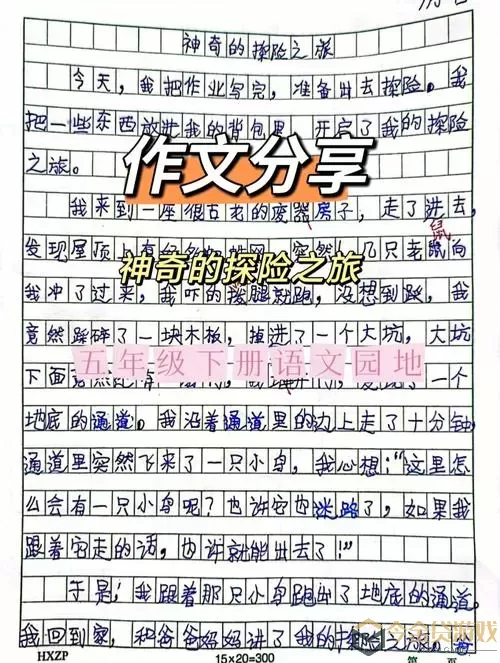 神奇的探险之旅
今天，我把作业写完，准备出去探险。我
把一些东西放进我的背包里，开启了我的探险
之旅。
作文分享
我来到一座很古老的房子，走了进去，
鼠
发现屋顶上有，突然，几只老鼠向
神奇的探险之旅
我冲了过来，我吓的拔腿就跑，没想到跺，我
竟然踩碎了一块木板，掉进了一个大坑，大坑
五年级下册语文园地
下面一个
地底的通道。我沿着通道里的边上走了十分钟，
通道里突然飞来了一只小鸟，我心想："这里怎
么会有一只小鸟呢？也许它也迷路了，如果我
跟着它走的话，也许就能出去了！"
于是，我跟着那只小鸟跑出了地底的通道，
我回到家，和爸爸妈妈讲了我的探险之旅。
今今贷游戏
HXZP
15×20=300
第 页